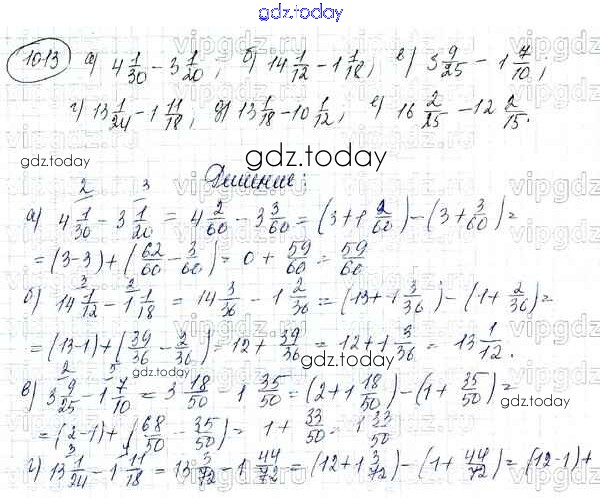 gdz.today
1013 а) 4 1/30 - 3 1/20 ; б) 14 1/12 - 1 1/18 ; в) 3 9/25 - 1 7/10 ;
г) 13 1/24 - 1 11/18 ; д) 13 1/18 - 10 1/12 ; е) 16 2/25 - 12 2/15 .
gdz.today
gdz.today
Решение:
а) 4 1/30 - 3 1/20 = 4 2/60 - 3 3/60 = (3 + 1 2/60) - (3 + 3/60) =
= (3-3) + (62/60 - 3/60) = 0 + 59/60 = 59/60
б) 14 1/12 - 1 1/18 = 14 3/36 - 1 2/36 = (13 + 1 3/36) - (1 + 2/36) =
= (13-1) + (39/36 - 2/36) = 12 + 39/36 = 12 + 1 3/36 = 13 1/12 .
gdz.today
gdz.today
в) 3 9/25 - 1 7/10 = 3 18/50 - 1 35/50 = (2 + 1 18/50) - (1 + 35/50) =
= (2-1) + (68/50 - 35/50) = 1 + 33/50 = 1 33/50
г) 13 1/24 - 1 11/18 = 13 3/72 - 1 44/72 = (12 + 1 3/72) - (1 + 44/72) = (12-1) +
gdz.today